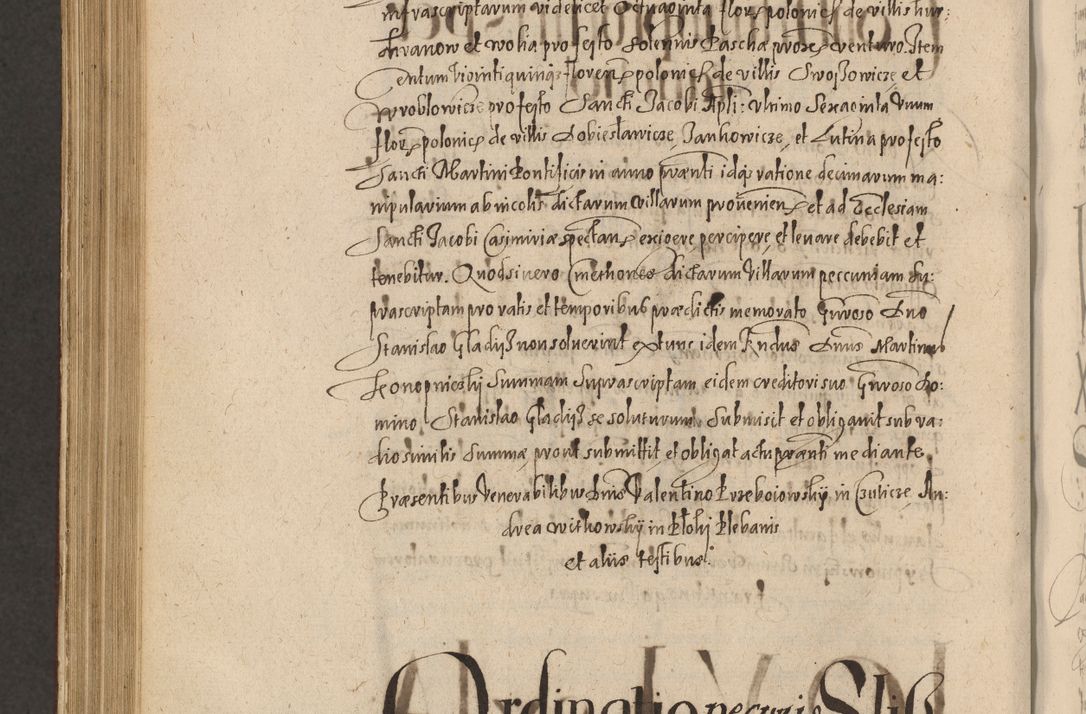 infrascriptarum videlicet Octuaginta flor: polonicz de villis hur:
hranow et wolia pro festo Solennis Pascha proxe venturo. Item
Centum viginti quinqz floren: polonicz de villis Swoszowicze et
Wroblowicze pro festo Sancti Jacobi Apli: vltimo Sexaginta Vnum
flor: polonicz de villis Dobieslawicze, Jankowicze, et Lutina pro festo
Sancti Martini Pontificis in anno præsenti idqz ratione decimarum ma:
nipularium ab incolis dictarum Villarum provenien: et ad Ecclesiam
Sancti Jacobi Casimiriæ spectan: exigere percipere, et levare debebit et
tenebitur. Quodsi vero Cmethones dictarum Villarum peccuniam su:
prascriptam pro ratis et temporibus prædictis memorato Gnroso Dno
Stanislao Gladijsz non soluerint extunc idem Rndus Dnus Martinus
Konopniczkij Summam Suprascriptam eidem creditori suo Gnroso Do:
mino Stanislao Gladijsz se soluturum Submisit et obligauit sub va:
dio similis Summæ prout submittit et obligat actu præsenti mediante
Præsentibus Venerabilibus Dnis Valentino Przeboiowskij in Czulicze, An:
drea Witkowskij in Plokj Plebanis
et aliis testibus.
Ordinatio pecuniæ